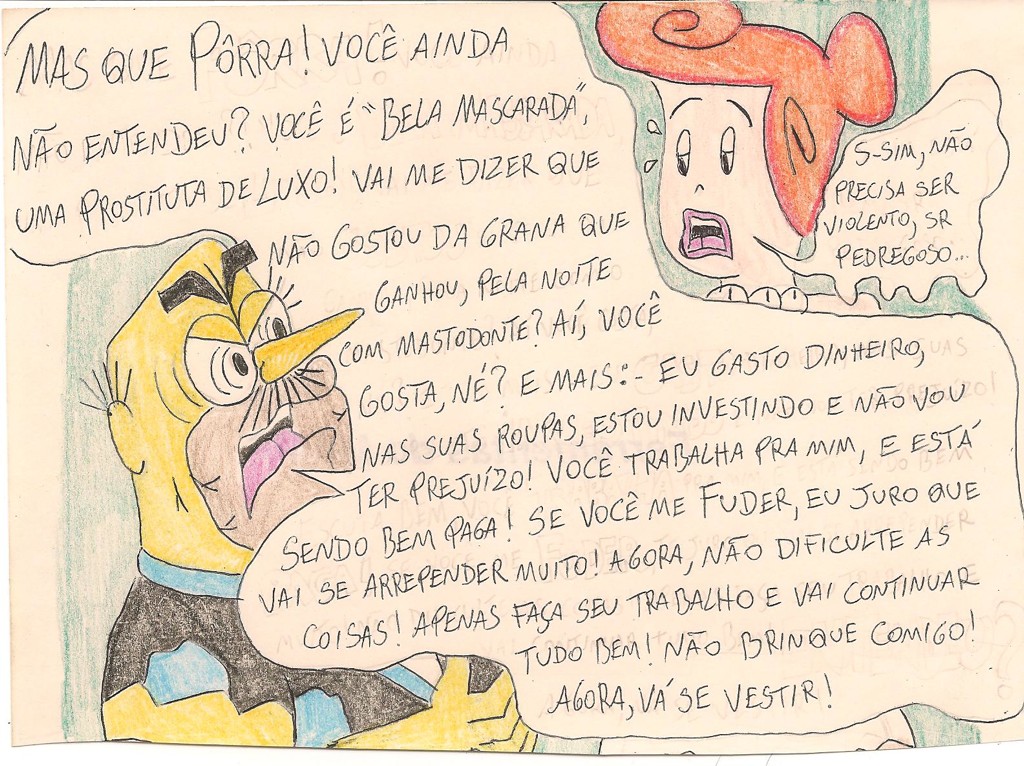 MAS QUE PÔRRA! VOCÊ AINDA
NÃO ENTENDEU? VOCÊ É "BELA MASCARADA",
UMA PROSTITUTA DE LUXO! VAI ME DIZER QUE
NÃO GOSTOU DA GRANA QUE
GANHOU, PELA NOITE
COM MASTODONTE? AÍ, VOCÊ
GOSTA, NÉ? E MAIS:- EU GASTO DINHEIRO,
NAS SUAS ROUPAS, ESTOU INVESTINDO E NÃO VOU
TER PREJUÍZO! VOCÊ TRABALHA PRA MIM, E ESTÁ
SENDO BEM PAGA! SE VOCÊ ME FUDER, EU JURO QUE
VAI SE ARREPENDER MUITO! AGORA, NÃO DIFICULTE AS
COISAS! APENAS FAÇA SEU TRABALHO E VAI CONTINUAR
TUDO BEM! NÃO BRINQUE COMIGO!
AGORA, VÁ SE VESTIR!
S-SIM, NÃO
PRECISA SER
VIOLENTO, SR
PEDREGOSO...